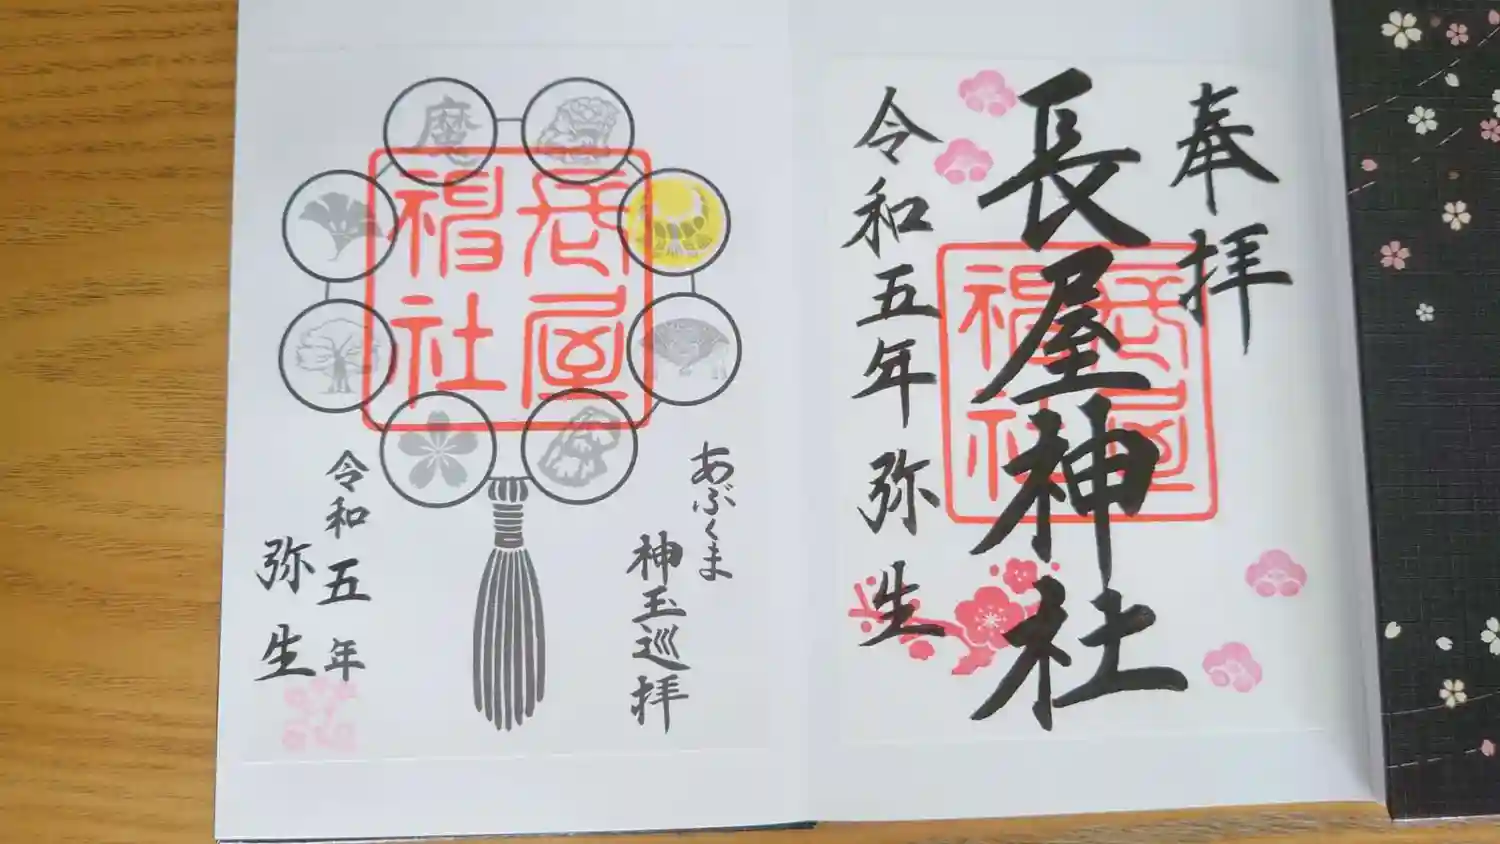 奉拝
長屋神社
長屋神社
令和五年弥生
魔
長屋神社
あぶくま
神玉巡拝
令和五年
弥生